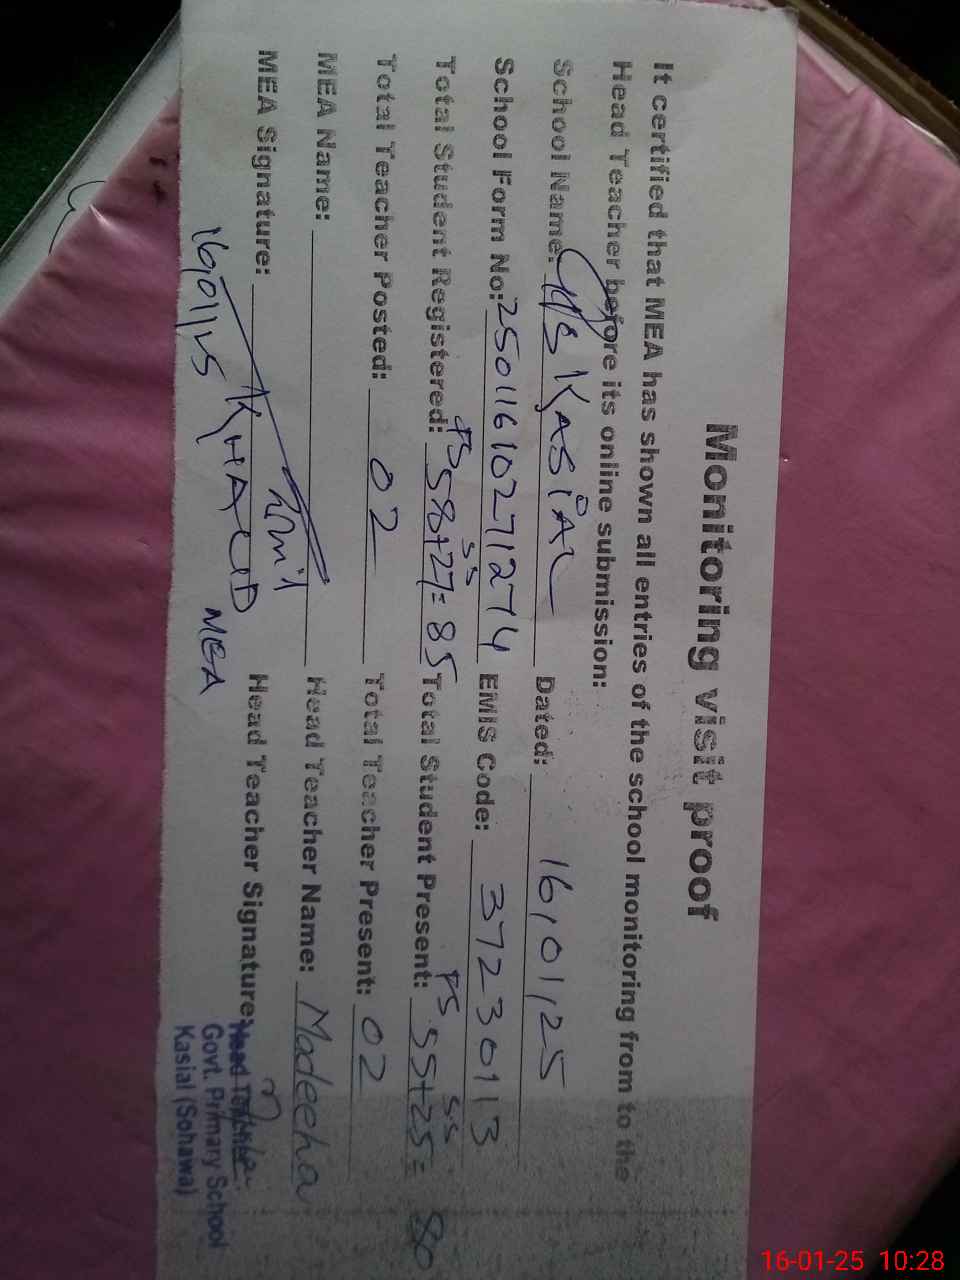 Monitoring visit proof
It certified that MEA has shown all entries of the school monitoring from to the
Head Teacher before its online submission:
School Name: GPS KASIAL Dated: 16/01/25
School Form No: 25011610271274 EMIS Code: 37230113
PS SS PS S.S
Total Student Registered: 58+27=85 Total Student Present: 55+25= 80
Total Teacher Posted: 02 Total Teacher Present: 02
MEA Name: Head Teacher Name: Madeeha
MEA Signature: KHALID Head Teacher Signature:
16/01/25 MEA
Head Teacher
Govt. Primary School
Kasial (Sohawa)
16-01-25 10:28